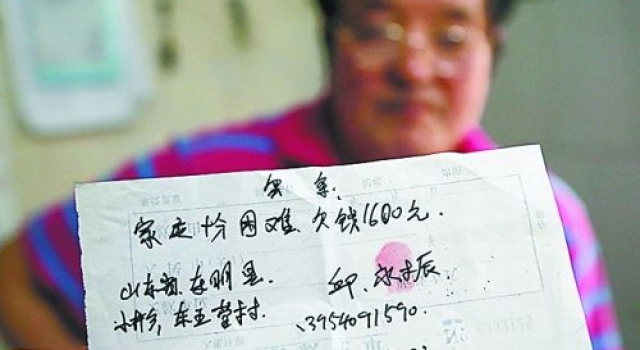 欠条:
家庭十份困难.欠钱1600元.
山东省.东明县. 邱.永 辰.
小井乡,东王堂村. 13954091590.